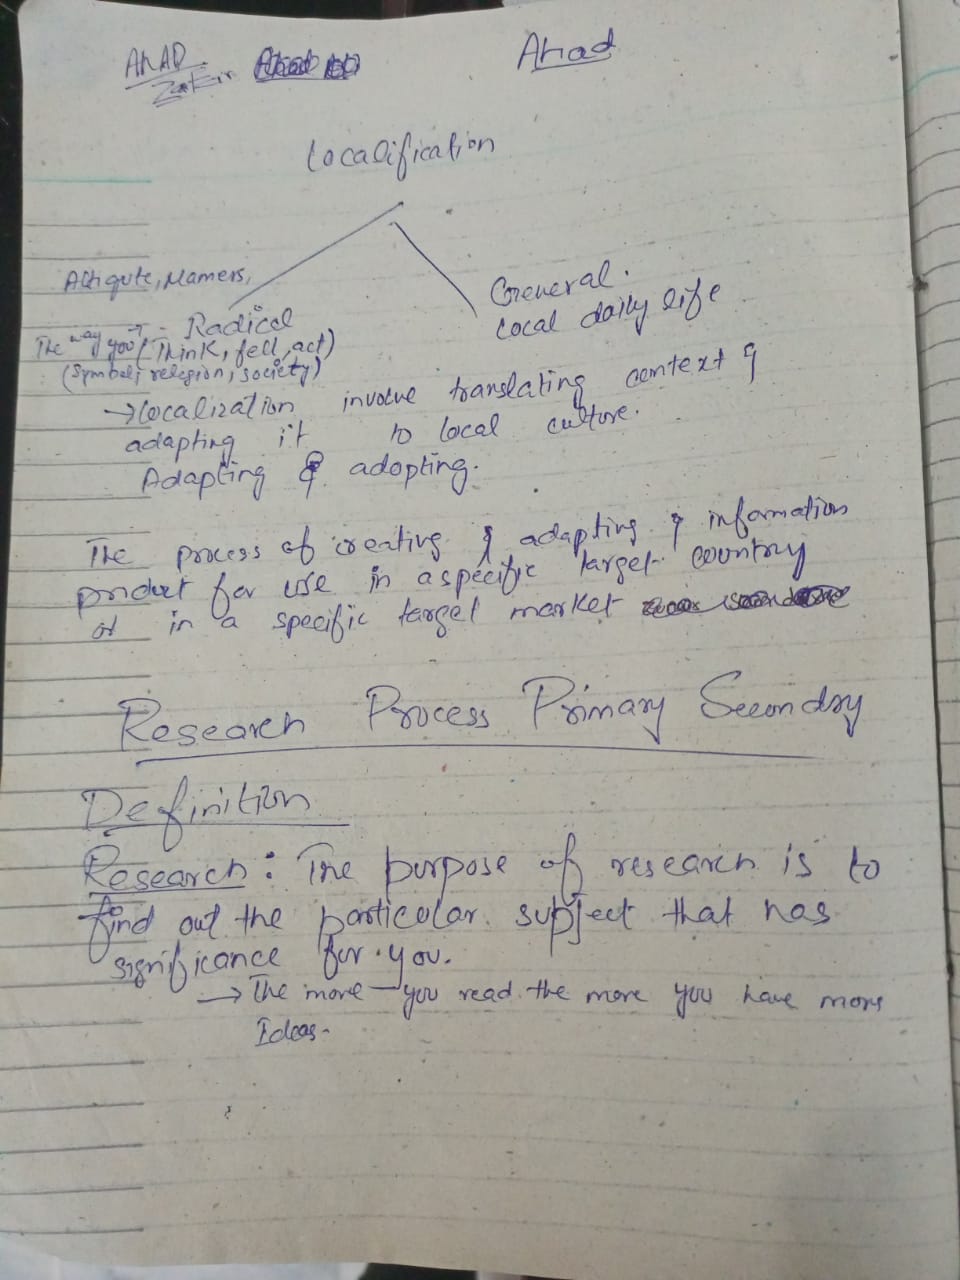 AHAD Ahad
Zakir
Localification
Attiqute, Mamers,
General.
Local daily life
Radical
The way you (Think, fell, act)
(Symbol, religion, society)
→ Localization involve translating context &
adapting it to local culture.
Adapting & adopting.
The process of creating & adapting & information
product for use in a specific target country
or in a specific target market
Research Process Primary Secondry
Definition
Research: The purpose of research is to
find out the particular subject that has
significance for you.
→ The more you read the more you have more
Ideas-